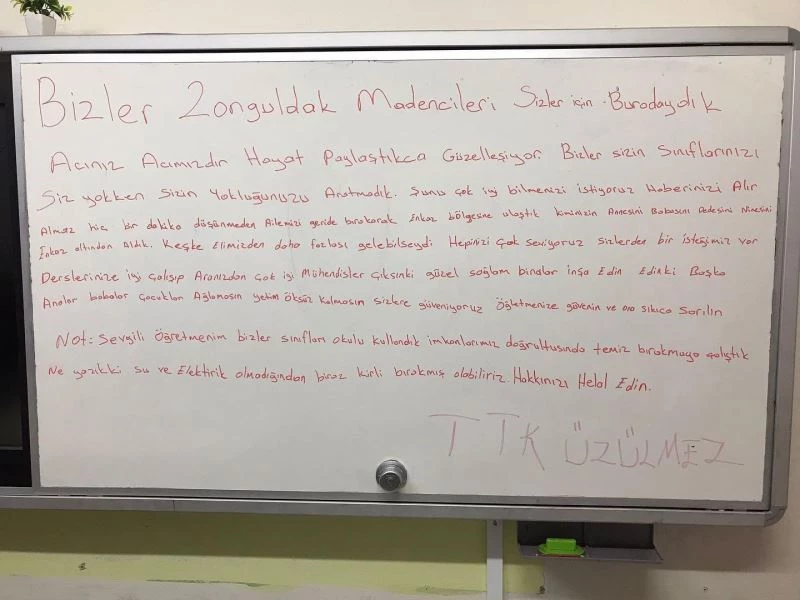 Bizler Zonguldak Madencileri Sizler için Buradaydık
Acınız Acımızdır Hayat Paylaştıkca Güzelleşiyor. Bizler sizin Sınıflarınızı
Siz yokken Sizin Yokluğunuzu Aratmadık. Şunu çok iyi bilmenizi istiyoruz Haberinizi Alır
Almaz hiç bir dakika düşünmeden Ailemizi geride bırakarak Enkaz bölgesine ulaştık kiminizin Annesini Babasını Dedesini Ninesini
Enkaz altından Aldık. Keşke Elimizden daha fazlası gelebilseydi Hepinizi Çok seviyoruz sizlerden bir isteğimiz var
Derslerinize iyi Çalışıp Aranızdan Çok iyi Mühendisler Çıksınki güzel sağlam binalar inşa Edin Edinki Başka
Analar babalar Çocuklar Ağlamasın yetim Öksüz kalmasın sizlere güveniyoruz Öğretmenize güvenin ve ona sıkıca Sarılın
Not: Sevgili Öğretmenim bizler sınıfları okulu kullandık imkanlarımız doğrultusunda temiz bırakmaya çalıştık
Ne yazıkki su ve Elektirik olmadığından biraz kirli bırakmış olabiliriz. Hakkınızı Helal Edin.
TTK ÜZÜLMEZ